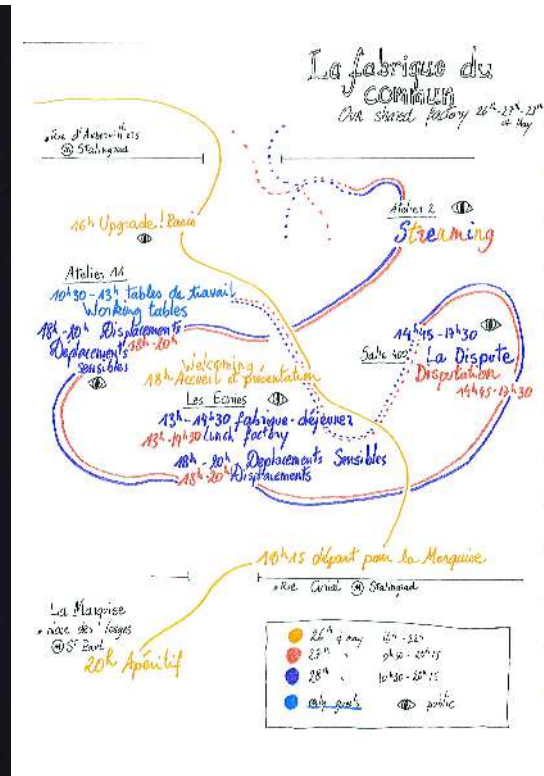 La fabrique du
COMMUN
Our shared factory 26th-27th-28th
of May
Rue d'Aubervilliers
M Stalingrad
Atelier 2
Streaming
16h Upgrade! Paris
Atelier 11
10h30-13h tables de travail
Working tables
18h-20h Displacements
18h-20h
Déplacements
sensibles
14h45-17h30
Salle 405
La Dispute
Disputation
14h45-17h30
Welcoming
18h Accueil et présentation
Les Ecuries
13h-14h30 fabrique-déjeuner
Lunch factory
18h-20h Deplacements Sensibles
18h-20h Displacements
départ pour la Marquise
Rue Curial M Stalingrad
La Marquise
place des Vosges
M St Paul
20h Apéritif
26th of may
27th
28th
only guests
public